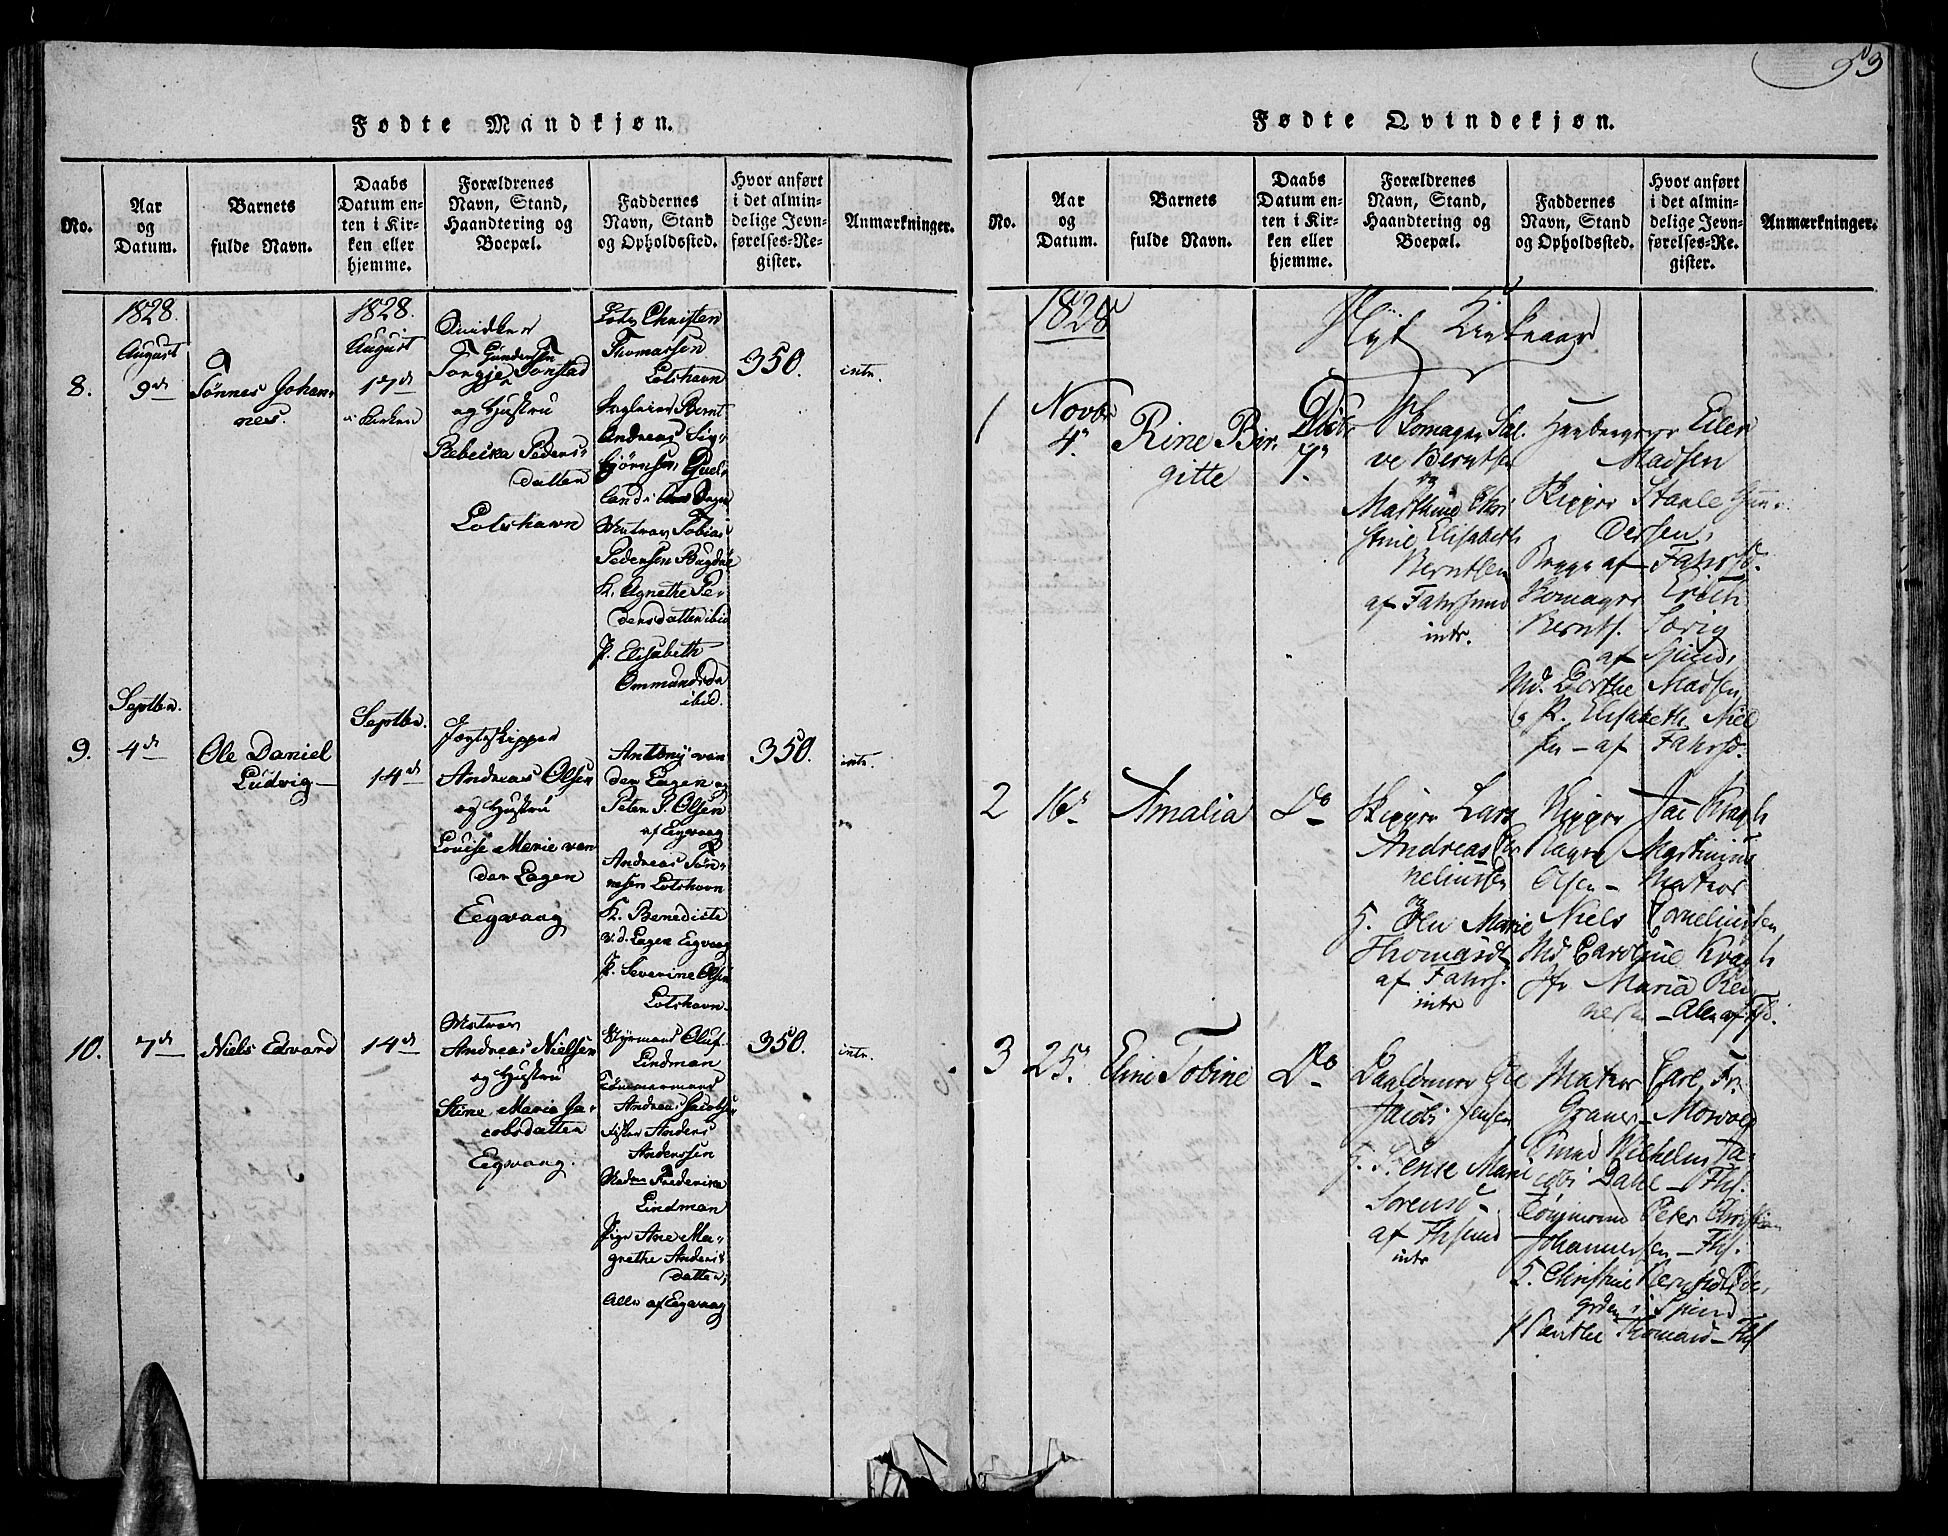 93
Fødte Mandkjøn.
No.
Aar
og
Datum.
Barnets
fulde Navn.
Daabs
Datum en-
ten i Kir-
ken eller
hjemme.
Forældrenes
Navn, Stand,
Haandtering og
Boepæl.
Faddernes
Navn, Stand
og Opholdssted.
Hvor anført
i det almin-
delige Jevn-
førelses-Re-
gister.
Anmærkninger.
8.
1828.
August
9de
Tønnes Johan-
nes.
1828.
August
17de
i Kirken
Snidker
Gundersen
Tongje Tonstad
og Hustru
Rebecka Peders-
datter
Lotshavn
Lods Christen
Thomassen
Lotshavn
Bernt
Andreas Sig-
bjørnsen
land i
Matros Tobias
Pedersen
K. Agnethe Pe-
dersdatter ibid
P. Elisabeth
Ommundsda
ibid.
350.
intr.
9.
Septbr.
4de
Ole Daniel
Ludvig
Septbr.
14de
Jagteskipper
Andreas Olsen
og Hustru
Louise Marie van
der Lagen
Eegvaag
Antony van
der Lagen og
Peter P. Olsen
af Eegvaag
Andreas Tøn-
nesen Lotshavn
K. Benedicte
v. d. Lagen Eegvaag
P. Severine Olsen
Lotshavn
350.
intr.
10.
7de
Niels Edvard
14de
Matros
Andreas Nielsen
og Hustru
Stine Marie Ja-
cobsdatter
Eegvaag.
Styrmand Oluf
Lindman
Tømmermand
Andreas Jacobsen
Fisker Anders
Anderssen
Madm Frederika
Lindman
Pige Ane Ma-
grethe Anders-
datter,
Alle af Eegvaag
350.
intr.
Fødte Qvindekjøn.
No.
Aar
og
Datum.
Barnets
fulde Navn.
Daabs
Datum en-
ten i Kir-
ken eller
hjemme.
Forældrenes
Navn, Stand,
Haandtering og
Boepæl.
Faddernes
Navn, Stand
og Opholdssted.
Hvor anført
i det almin-
delige Jevn-
førelses-Re-
gister.
Anmærkninger.
1828
Nyt Kirkeaar
1
Novbr
4.
Rine Bir-
gitte
Decbr
7.
Skomager Sal-
ve Berntsen
og
Marthine Chri-
stine Elisabeth
Berntsen
af Fahrsund
intr.
Eilert
Madsen
Skipper Staale Gun-
dersen,
Begge af Fahrsd.
Skomager Erich
Bernts.
af Spind,
Md. Berthe Madsen,
og P. Elisabeth Niel
sen - af Fahrsd.
2
16
Amalia
Do
Skipper Lars
Andreas Cor
neliussen
og
H. Olu Marie
Thomasdt
af Fahrs.
intr
Skipper Jac Kragh
Martinius
Olsen - Matros
Niels Corneliussen,
Md Caroline Kragh
Jfr Maria Rei
ners - Alle af Fd.
3
25.
Eline Tobine
Do
Ole
Jacob Jensen
H. Stense Marie
Sørensd
af Fhsund
intr
Matros Carl Fr.
Wilhelm Ja-
cob Dahl - Fhs.
Tømmermd Peter Christian
Johannessen - Fhs.
H. Christine
i Spind
P Benthe Thomasd - Fhs